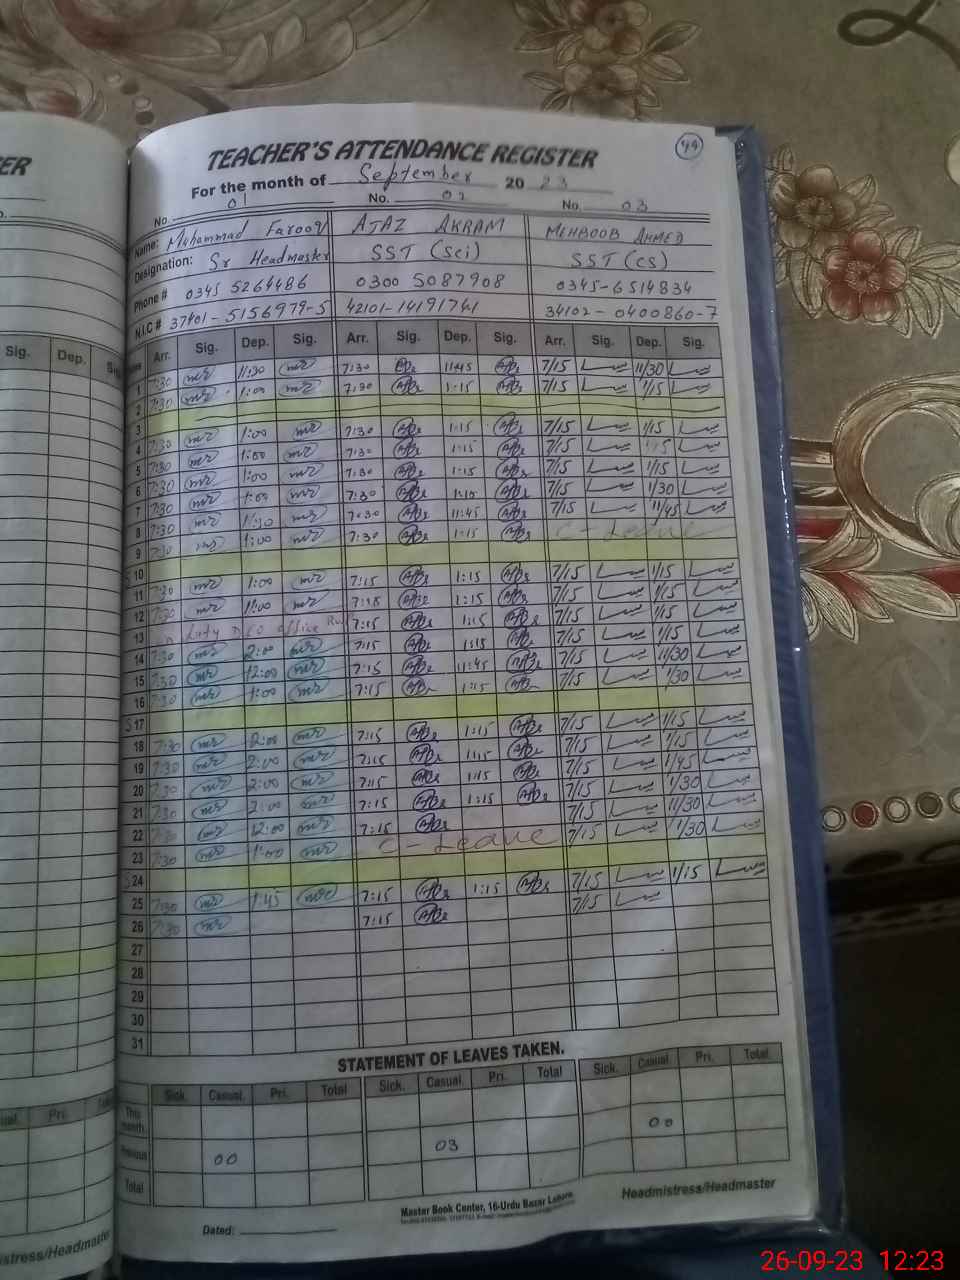 ER
49
TEACHER'S ATTENDANCE REGISTER
For the month of September 2023
No. 01 No. 02 No. 03
Name: Muhammad Farooq AJAZ AKRAM MEHBOOB AHMED
Designation: Sr Headmaster SST (Sci) SST (CS)
Phone # 0345 5264486 0300 5087908 0345-6514834
N.I.C # 37401-5156979-5 42101-14191741 34102-0400860-7
Sig. Dep. Arr. Sig. Dep. Sig. Arr. Sig. Dep. Sig. Arr. Sig. Dep. Sig.
1 7:30 11:30 7:30 11:45 7/15 11/30
2 7:30 1:00 7:30 1:15 7/15 1/15
3
4 7:30 1:00 7:30 1:15 7/15 1/15
5 7:30 1:00 7:30 1:15 7/15
6 7:30 1:00 7:30 1:15 7/15 1/15
7 7:30 1:00 7:30 7/15 1/30
8 7:30 11:30 7:30 11:45 7/15 11/45
9 7:30 1:00 7:30 1:15 C-Leave
10
11 7:30 1:00 7:15 1:15 7/15 1/15
12 7:30 1:00 7:15 1:15 7/15 1/15
13 Duty office 7:15 1:15 7/15 1/15
14 7:30 2:00 7:15 1:15 7/15 1/15
15 7:30 12:00 7:15 11:45 7/15 11/30
16 7:30 1:00 7:15 1:15 7/15 1/30
S 17
18 7:30 2:00 7:15 1:15 7/15 1/15
19 7:30 2:00 7:15 1:15 7/15 1/15
20 7:30 2:00 7:15 1:15 7/15 1/45
21 7:30 2:00 7:15 1:15 7/15 1/30
22 7:30 12:00 7:15 7/15 11/30
23 7:30 1:00 C-Leave 7/15 1/30
S 24
25 7:30 1:45 7:15 1:15 7/15 1/15
26 7:30 7:15 7/15
27
28
29
30
31
STATEMENT OF LEAVES TAKEN.
Sick. Casual. Pri. Total Sick. Casual. Pri. Total Sick. Casual. Pri. Total
This month
Previous 00 03 00
Total
Master Book Center, 16-Urdu Bazar Lahore
Headmistress/Headmaster
Dated:
26-09-23 12:23